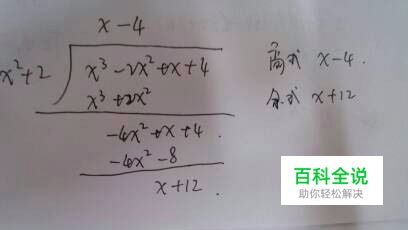 x-4
x²+2 x³-2x²+x+4
x³+2x²
-4x²+x+4.
-4x²-8
x+12.
商式 x-4.
余式 x+12
百科全说
助你轻松解决